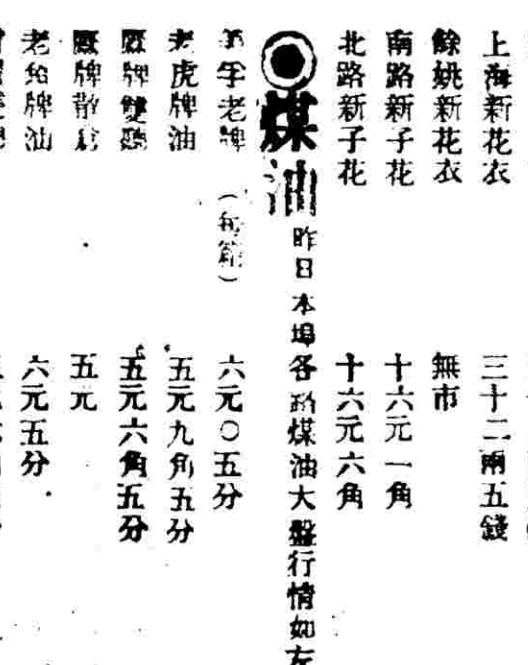 上海新花衣 三十二兩五錢
餘姚新花衣 無市
南路新子花 十六元一角
北路新子花 十六元六角
◉煤油 昨日本埠各路煤油大盤行情如左
老牌(每箱) 六元〇五分
老虎牌油 五元九角五分
鷹牌雙聽 五元六角五分
鷹牌散倉 五元
老牌油 六元五分